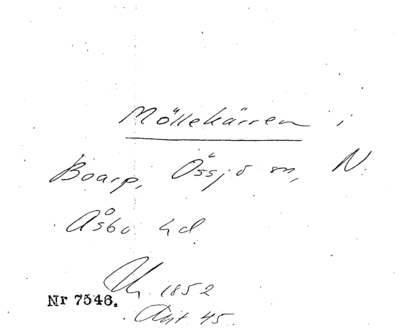 Möllekärren i
Boarp, Össjö sn, N.
Åsbo hd
Uk 1852
Nr 7546.
Akt 45.